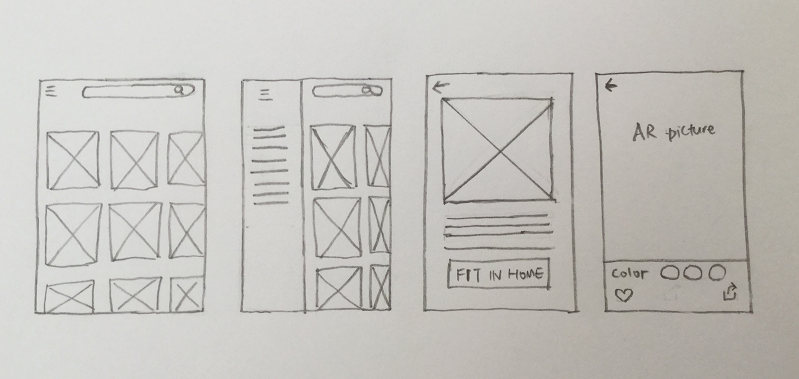 FIT IN HOME
AR picture
Color